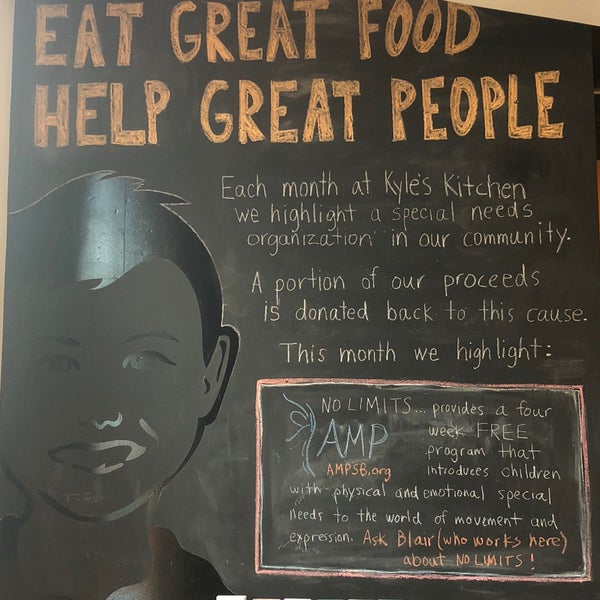 EAT GREAT FOOD
HELP GREAT PEOPLE
Each month at Kyle's Kitchen
we highlight a special needs
organization in our community.
A portion of our proceeds
is donated back to this cause.
This month we highlight:
NO LIMITS... provides a four
week FREE
AMP
program that
AMPSB.org
introduces children
with physical and emotional special
needs to the world of movement and
expression. Ask Blair (who works here)
about NO LIMITS!